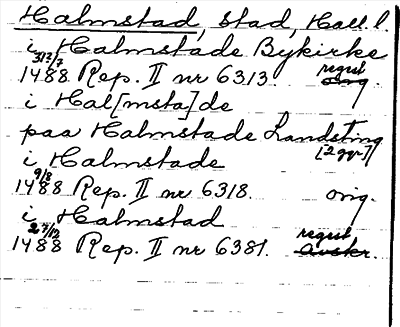 Halmstad, stad, Hall l.
i Halmstade Bykirke
1488 31/7 Rep. II nr 6313. regest
i Hal[msta]de
paa Halmstade Landsting
i Halmstade [2 ggr]
1488 9/8 Rep. II nr 6318. orig.
i Halmstad
1488 27/12 Rep. II nr 6381. regest avskr.